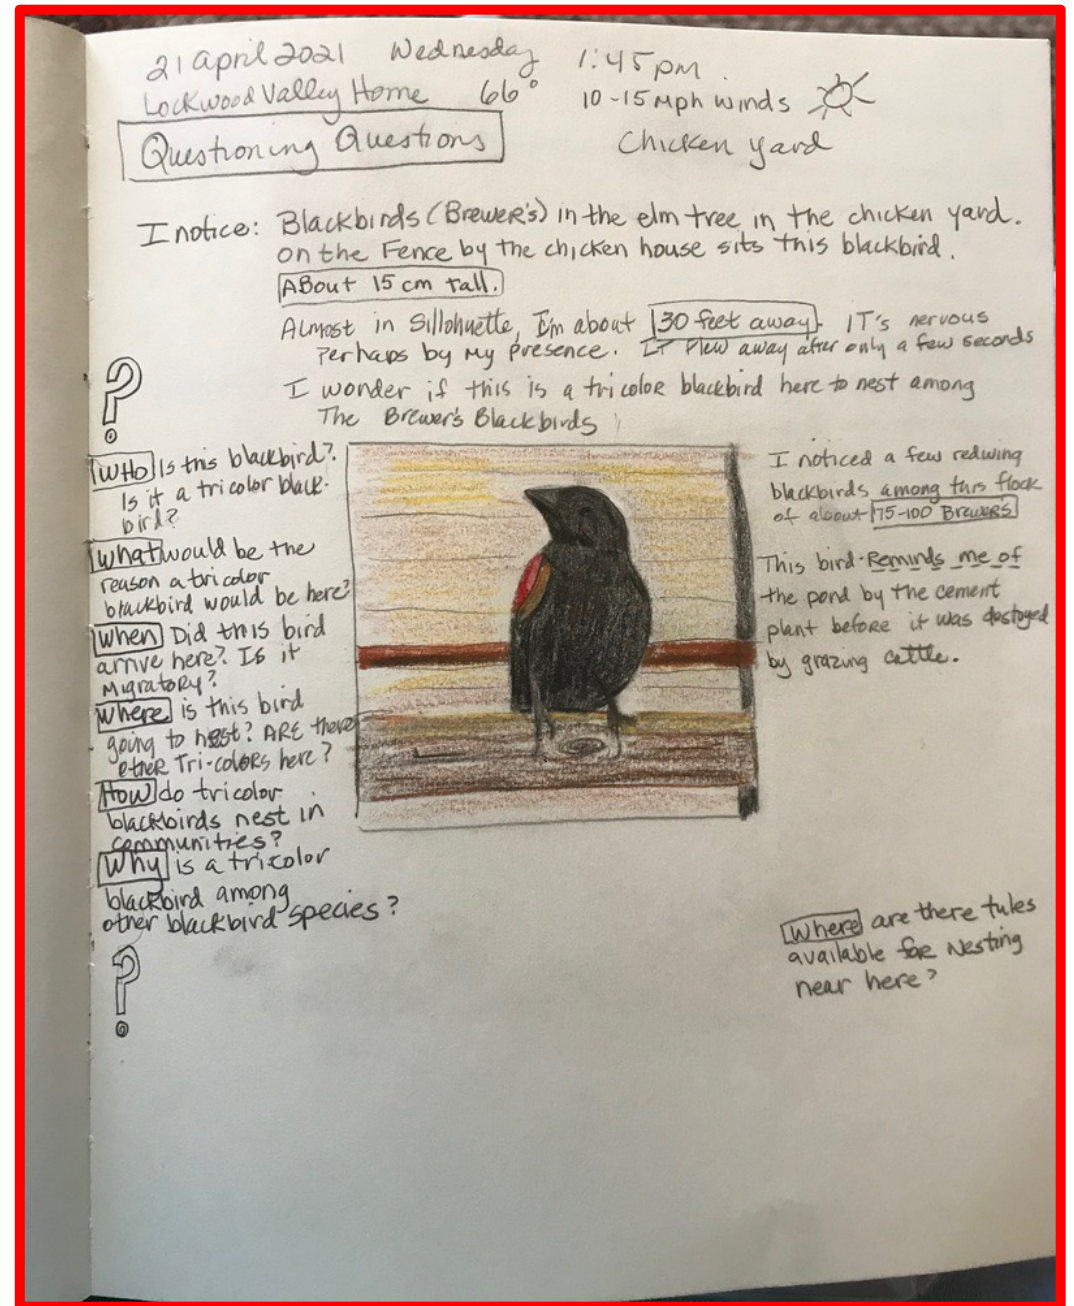 21 April 2021 Wednesday 1:45 pm.
Lockwood Valley Home 66° 10-15 mph winds
Questioning Questions
Chicken yard
I notice: Blackbirds (Brewer's) in the elm tree in the chicken yard.
on the Fence by the chicken house sits this blackbird.
About 15 cm tall.
Almost in Sillohuette, I'm about 30 feet away. IT's nervous
perhaps by my presence. IT flew away after only a few seconds
I wonder if this is a tricolor blackbird here to nest among
The Brewer's Blackbirds
?
Who Is this blackbird?
Is it a tricolor black-
bird?
What would be the
reason a tricolor
blackbird would be here?
When Did this bird
arrive here? Is it
Migratory?
Where is this bird
going to nest? ARE there
other Tri-colors here?
How do tricolor
blackbirds nest in
communities?
Why is a tricolor
blackbird among
other blackbird species?
?
I noticed a few redwing
blackbirds among this flock
of about 75-100 Brewers
This bird Reminds me of
the pond by the cement
plant before it was dostoyed
by grazing cattle.
Where are there tules
available for Nesting
near here?